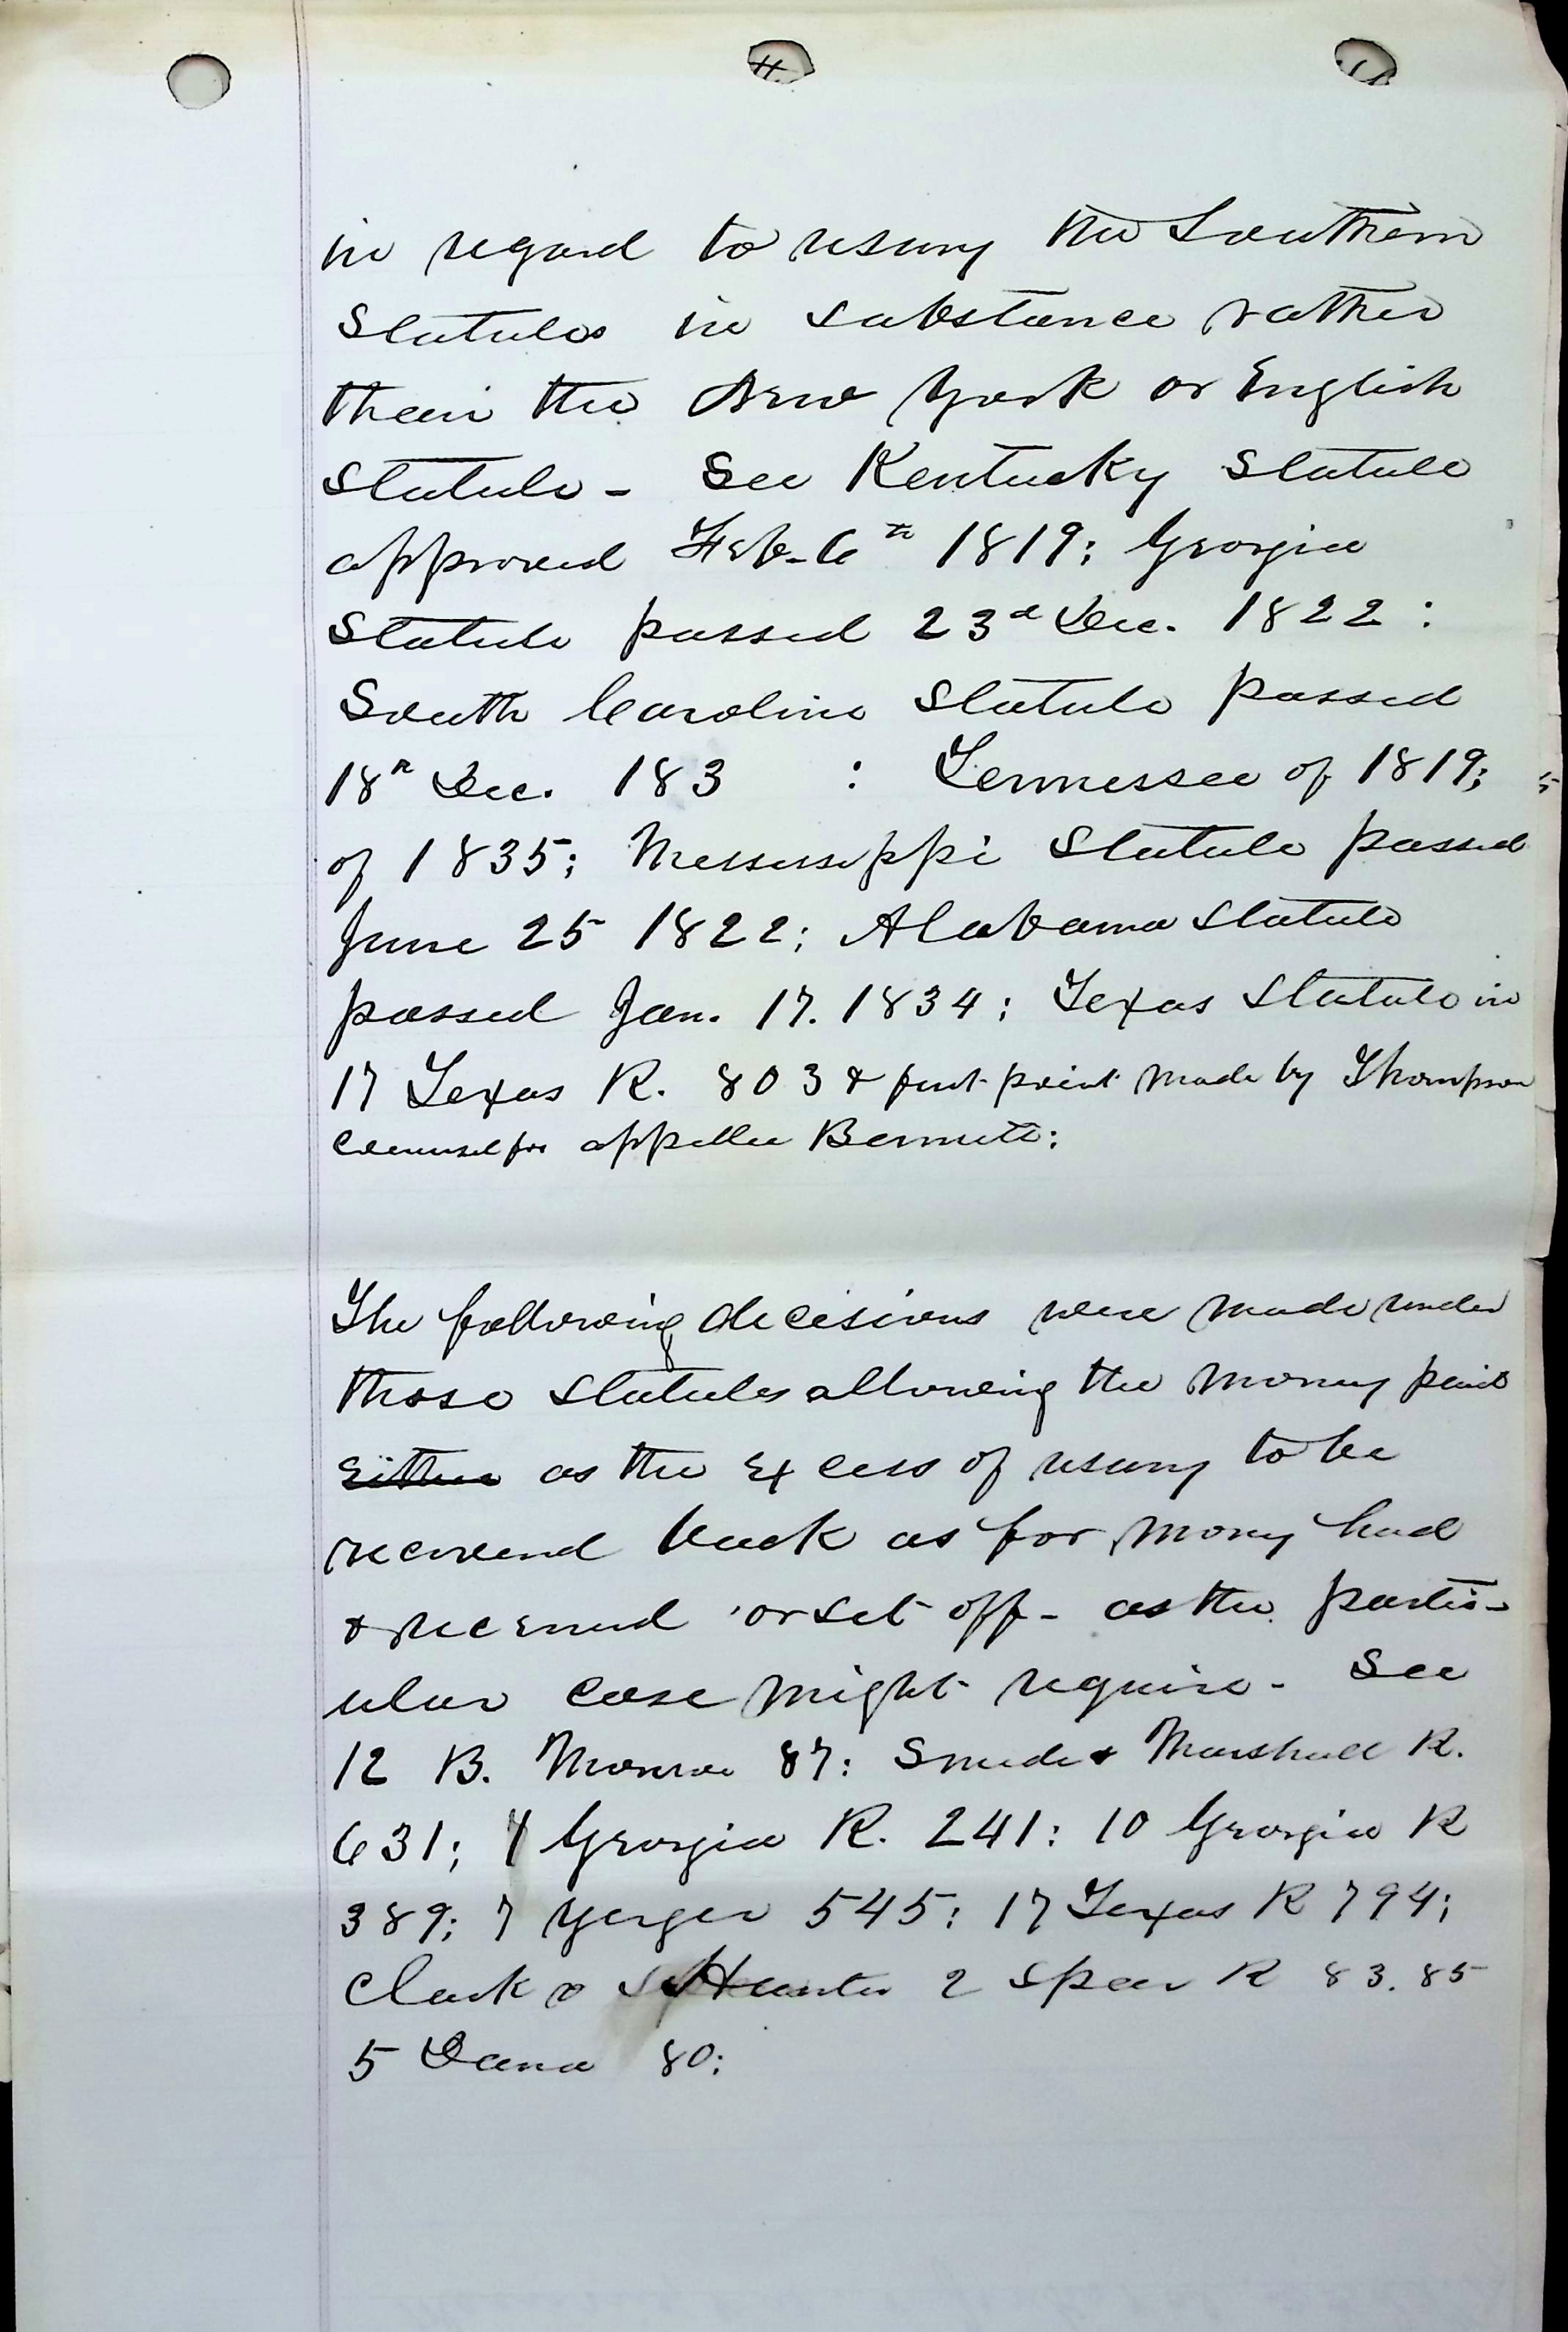 in regard to usury the Southern
Statutes in substance rather
than the New York or English
Statute - See Kentucky Statute
approved Feb. 6th 1819; Georgia
Statute passed 23d Dec. 1822:
South Carolina Statute passed
18th Dec. 183 : Tennessee of 1819;
of 1835; Mississippi Statute passed
June 25 1822; Alabama Statute
passed Jan. 17. 1834; Texas Statute in
17 Texas R. 803 & first point made by Thompson
Counsel for appellee Bennett:
The following decisions were made under
those Statutes allowing the money paid
either as the excess of usury to be
recovered back as for money had
& received or set off - as the partic-
ular case might require - See
12 B. Monroe 87: Smede & Marshall R.
631; Georgia R. 241: 10 Georgia R
389; 7 Yerger 545: 17 Texas R 794;
Clark & Hunter 2 Spear R 83. 85
5 Dana 80;